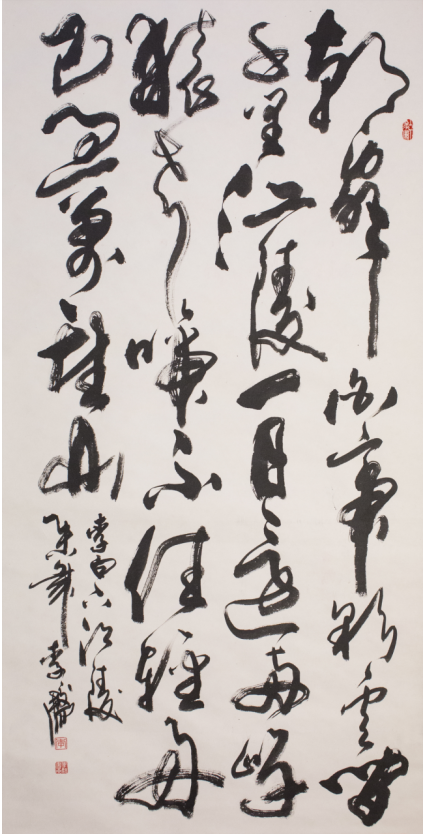 朝辭白帝彩雲間
千里江陵一日還兩岸
猿聲啼不住輕舟
已過萬重山
李白下江陵
李